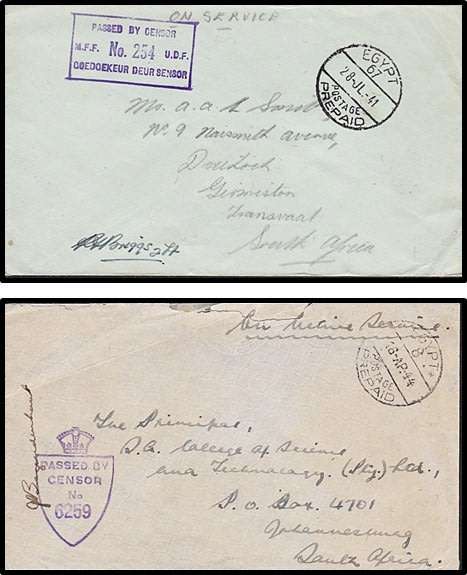 ON SERVICE
PASSED BY CENSOR
M.F.F. No. 254 U.D.F.
GOEDGEKEUR DEUR SENSOR
EGYPT
67
28-JL-41
POSTAGE
PREPAID
Mr. A. A. L
No. 9 Naismith Avenue,
Germiston
Transvaal
South Africa
Briggs Lt
On Active Service.
EGYPT
8
8-AP.44
POSTAGE
PREPAID
The Principal,
S.A. College of Science
and Technology. (Pty.) Ltd.,
P.O. Box. 4701
Johannesburg
South Africa.
PASSED BY
CENSOR
No
6259